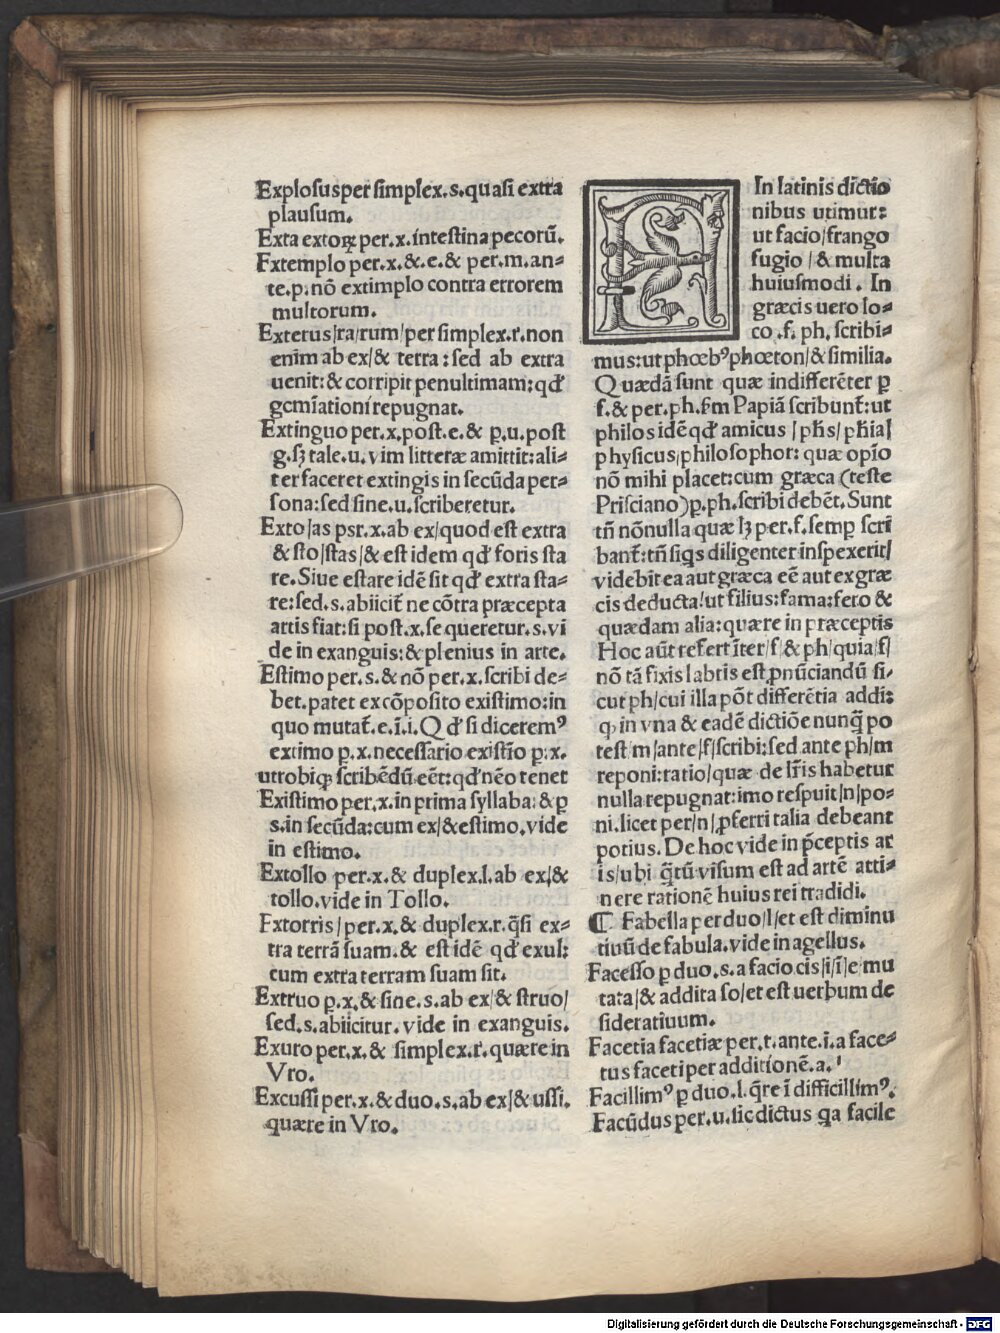 Explosus per simplex.s.quasi extra
plausum.
Exta extoꝝ per.x.intestina pecorū.
Extemplo per.x.&.e.& per.m.an⸗
te.p.nō extimplo contra errorem
multorum.
Exterus/ra/rum/per simplex.r.non
enim ab ex/& terra:sed ab extra
uenit:& corripit penultimam:qđ
gemīationi repugnat.
Extinguo per.x.post.e.& p̱.u.post
g.sꝫ tale.u.vim litteræ amittit:ali⸗
ter faceret extingis in secūda per⸗
sona:sed sine.u.scriberetur.
Exto/as psr.x.ab ex/quod est extra
& sto/stas/& est idem qđ foris sta
re.Siue estare idē sit qđ extra sta⸗
re:sed.s.abiicit̄ ne cōtra præcepta
artis fiat:si post.x.se queretur.s.vi
de in exanguis:& plenius in arte.
Estimo per.s.& nō per.x.scribi de⸗
bet.patet ex cōposito existimo:in
quo mutat̄.e.ī.i.Qđ si diceremꝰ
extimo p̱.x.necessario existīo p̱.x.
utrobiqꝫ scribēdū eēt:qđ nēo tenet
Existimo per.x.in prima syllaba:& p̱
s.in secūda:cum ex/& estimo.vide
in estimo.
Extollo per.x.& duplex.l.ab ex/&
tollo.vide in Tollo.
Extorris/per.x.& duplex.r.q̄si ex⸗
tra terrā suam.& est idē qđ exul:
cum extra terram suam sit.
Extruo p̱.x.& sine.s.ab ex/& struo/
sed.s.abiicitur.vide in exanguis.
Exuro per.x.& simplex.r.quære in
Vro.
Excussi per.x.& duo.s.ab ex/& ussi.
quære in Vro.
F In latinis dictio
nibus utimur:
ut facio/frango
fugio/& multa
huiusmodi. In
græcis uero lo⸗
co.f.ph.scribi⸗
mus:ut phœbꝰ phœton/& similia.
Quædā sunt quæ indifferēter p̱
f.& per.ph.sm Papiā scribunt̄:ut
philos idē qđ amicus/phs/phia/
physicus/philosophor: quæ opīo
nō mihi placet:cum græca (teste
Prisciano)p̱.ph.scribi debēt.Sunt
tn̄ nōnulla quæ lꝫ per.f.semp̱ scri
bant̄:tn̄ siq̄s diligenter inspexerit/
videbit ea aut græca eē aut ex græ
cis deducta/ut filius:fama:fero &
quædam alia:quære in præceptis
Hoc aūt refert īter/f/& ph/quia/f/
nō tā fixis labris est ꝓnūciandū si⸗
cut ph/cui illa pōt differētia addi:
ꝙ in vna & eadē dictiōe nunq̄ po
test/m/ante/f/scribi:sed ante ph/m
reponi:ratio/quæ de lr̄is habetur
nulla repugnat:imo respuit/n/po⸗
ni.licet per/n/ꝓferri talia debeant
potius.De hoc vide in p̄ceptis ar
is/ubi q̄tū visum est ad artē atti⸗
nere rationē huius rei tradidi.
¶ Fabella per duo/l/et est diminu
tiuū de fabula.vide in agellus.
Facesso p̱ duo.s.a facio cis/i/ī/e mu
tata/& addita so/et est uerbum de
sideratiuum.
Facetia facetiæ per.t.ante.i.a face⸗
tus faceti per additionē.a.
Facillimꝰ p̱ duo.l.q̄re ī difficillimꝰ.
Facūdus per.u.sic dictus ꝗa facile
Digitalisierung gefördert durch die Deutsche Forschungsgemeinschaft - DFG